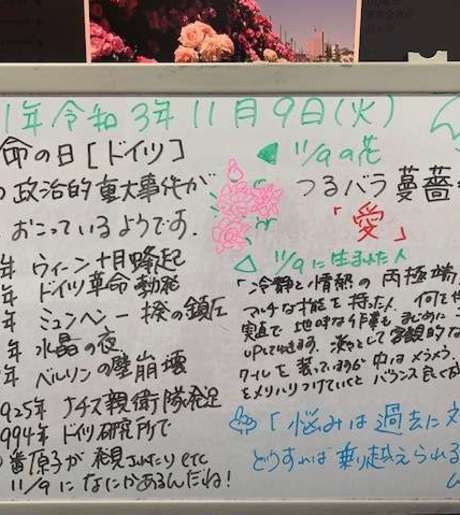 1年 令和3年 11月9日(火)
命の日[ドイツ]
の政治的重大事件が
おこっているようです.
年 ウィーン十月蜂起
年 ドイツ革命勃発
年 ミュンヘン一揆の鎮圧
年 水晶の夜
年 ベルリンの壁崩壊
925年 ナチス親衛隊発足
994年 ドイツ研究所で
番原子が発見されたり etc
11/9になにかあるんだね!
11/9の花
つるバラ 蔓薔
「愛」
11/9に生まれた人
「冷静と情熱の両極端
マルチな才能を持った人 何を
実直で地味な作業もまじめに
UPして 客観的な
クールを装っていますが 中はメラメラ
をメリハリつけていくと バランス良く
「悩みは過去に
どうすれば乗り越えられる